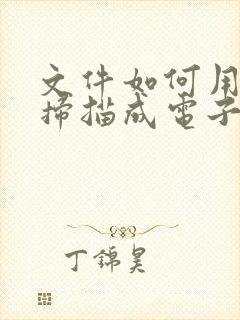 文件如何用
掃描成電子
丁錦昊